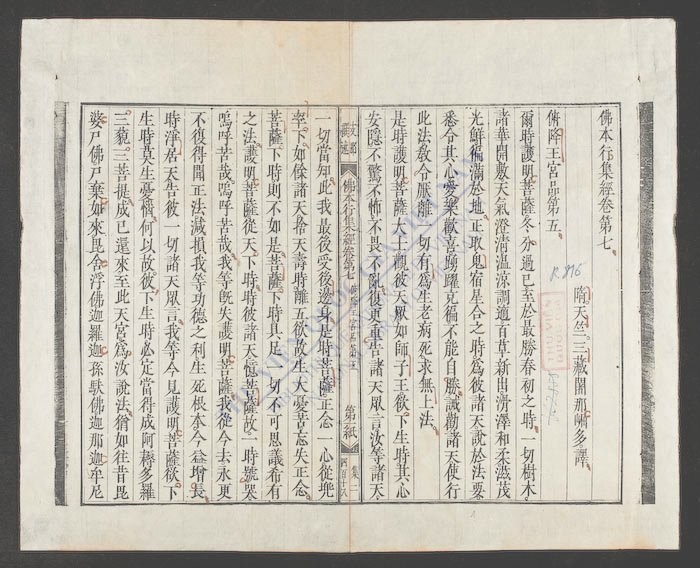 佛本行集經卷第七
隋天竺三藏闍那崛多譯
俯降王宮品第五
爾時護明菩薩冬分過已至於最勝春初之時一切樹木
諸華開敷天氣澄清溫涼調適百草新出滑澤和柔滋茂
光鮮徧滿於地正取鬼宿星合之時為彼諸天說於法要
悉令其心愛樂歡喜踴躍充徧不能自勝誡勸諸天使行
此法教令厭離一切有為生老病死求無上法
是時護明菩薩大士觀彼天眾如師子王欲下生時其心
安隱不驚不怖不畏不亂復更重告諸天眾言汝等諸天
佛本行集經卷第七
第一紙
集二
一切當知此我最後受後邊身是時菩薩正念一心從兜
率下如餘諸天捨天壽時離五欲故生大憂苦忘失正念
菩薩下時則不如是菩薩下時具足一切不可思議希有
之法護明菩薩從天下時時彼諸天憶菩薩故一時號哭
嗚呼苦哉嗚呼苦哉我等旣失護明菩薩我從今去永更
不復得聞正法減損我等功德之利生死根本今益增長
時淨居天告彼一切諸天眾言我等今見護明菩薩欲下
生時莫生憂惱何以故彼下生時必定當得成阿耨多羅
三藐三菩提成已還來至此天宮為汝說法猶如往昔毘
婆尸佛尸棄如來毘舍浮佛迦羅迦孫馱佛迦那迦牟尼
R.816